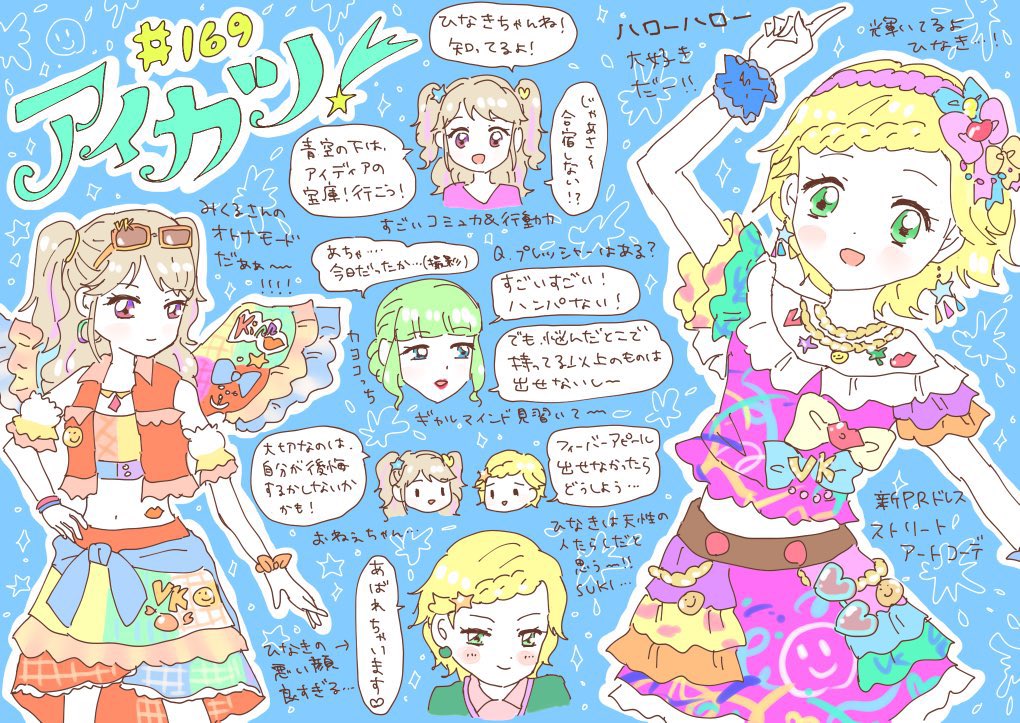 #169
アイカツ!
ひなきちゃんね!
知ってるよ!
じゃあさ〜
合宿しない!?
青空の下は、
アイディアの
宝庫!行こう!
すごいコミュカ&行動力
ハローハロー
大好き
だー!!
輝いてるよ
ひなき…!
みくるさんの
オトナモード
だぁぁ〜
!!!!
Kira
あちゃ….
今日だったか…(撮影)
カヨコっち
Q.プレッシャーはある?
すごいすごい!
ハンパない!
でも、悩んだとこで
持ってる以上のものは
出せないし〜
ギャルマインド見習いて〜
大切なのは、
自分が後悔
するかしないか
かも!
おねぇちゃん…
フィーバーアピール
出せなかったら
どうしよう…
ひなきは天性の
人たらしだと
思う〜!!
SUKI…
あばれちゃいます♡
ひなきの →
悪い顔
良すぎる…
新PRドレス
ストリート
アートコーデ
VK
VK
VK
VK